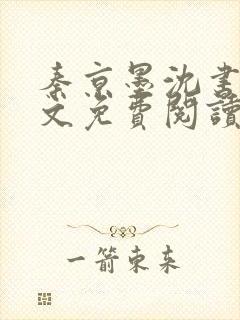 秦京墨沈書
文免費閱讀
一箭東来